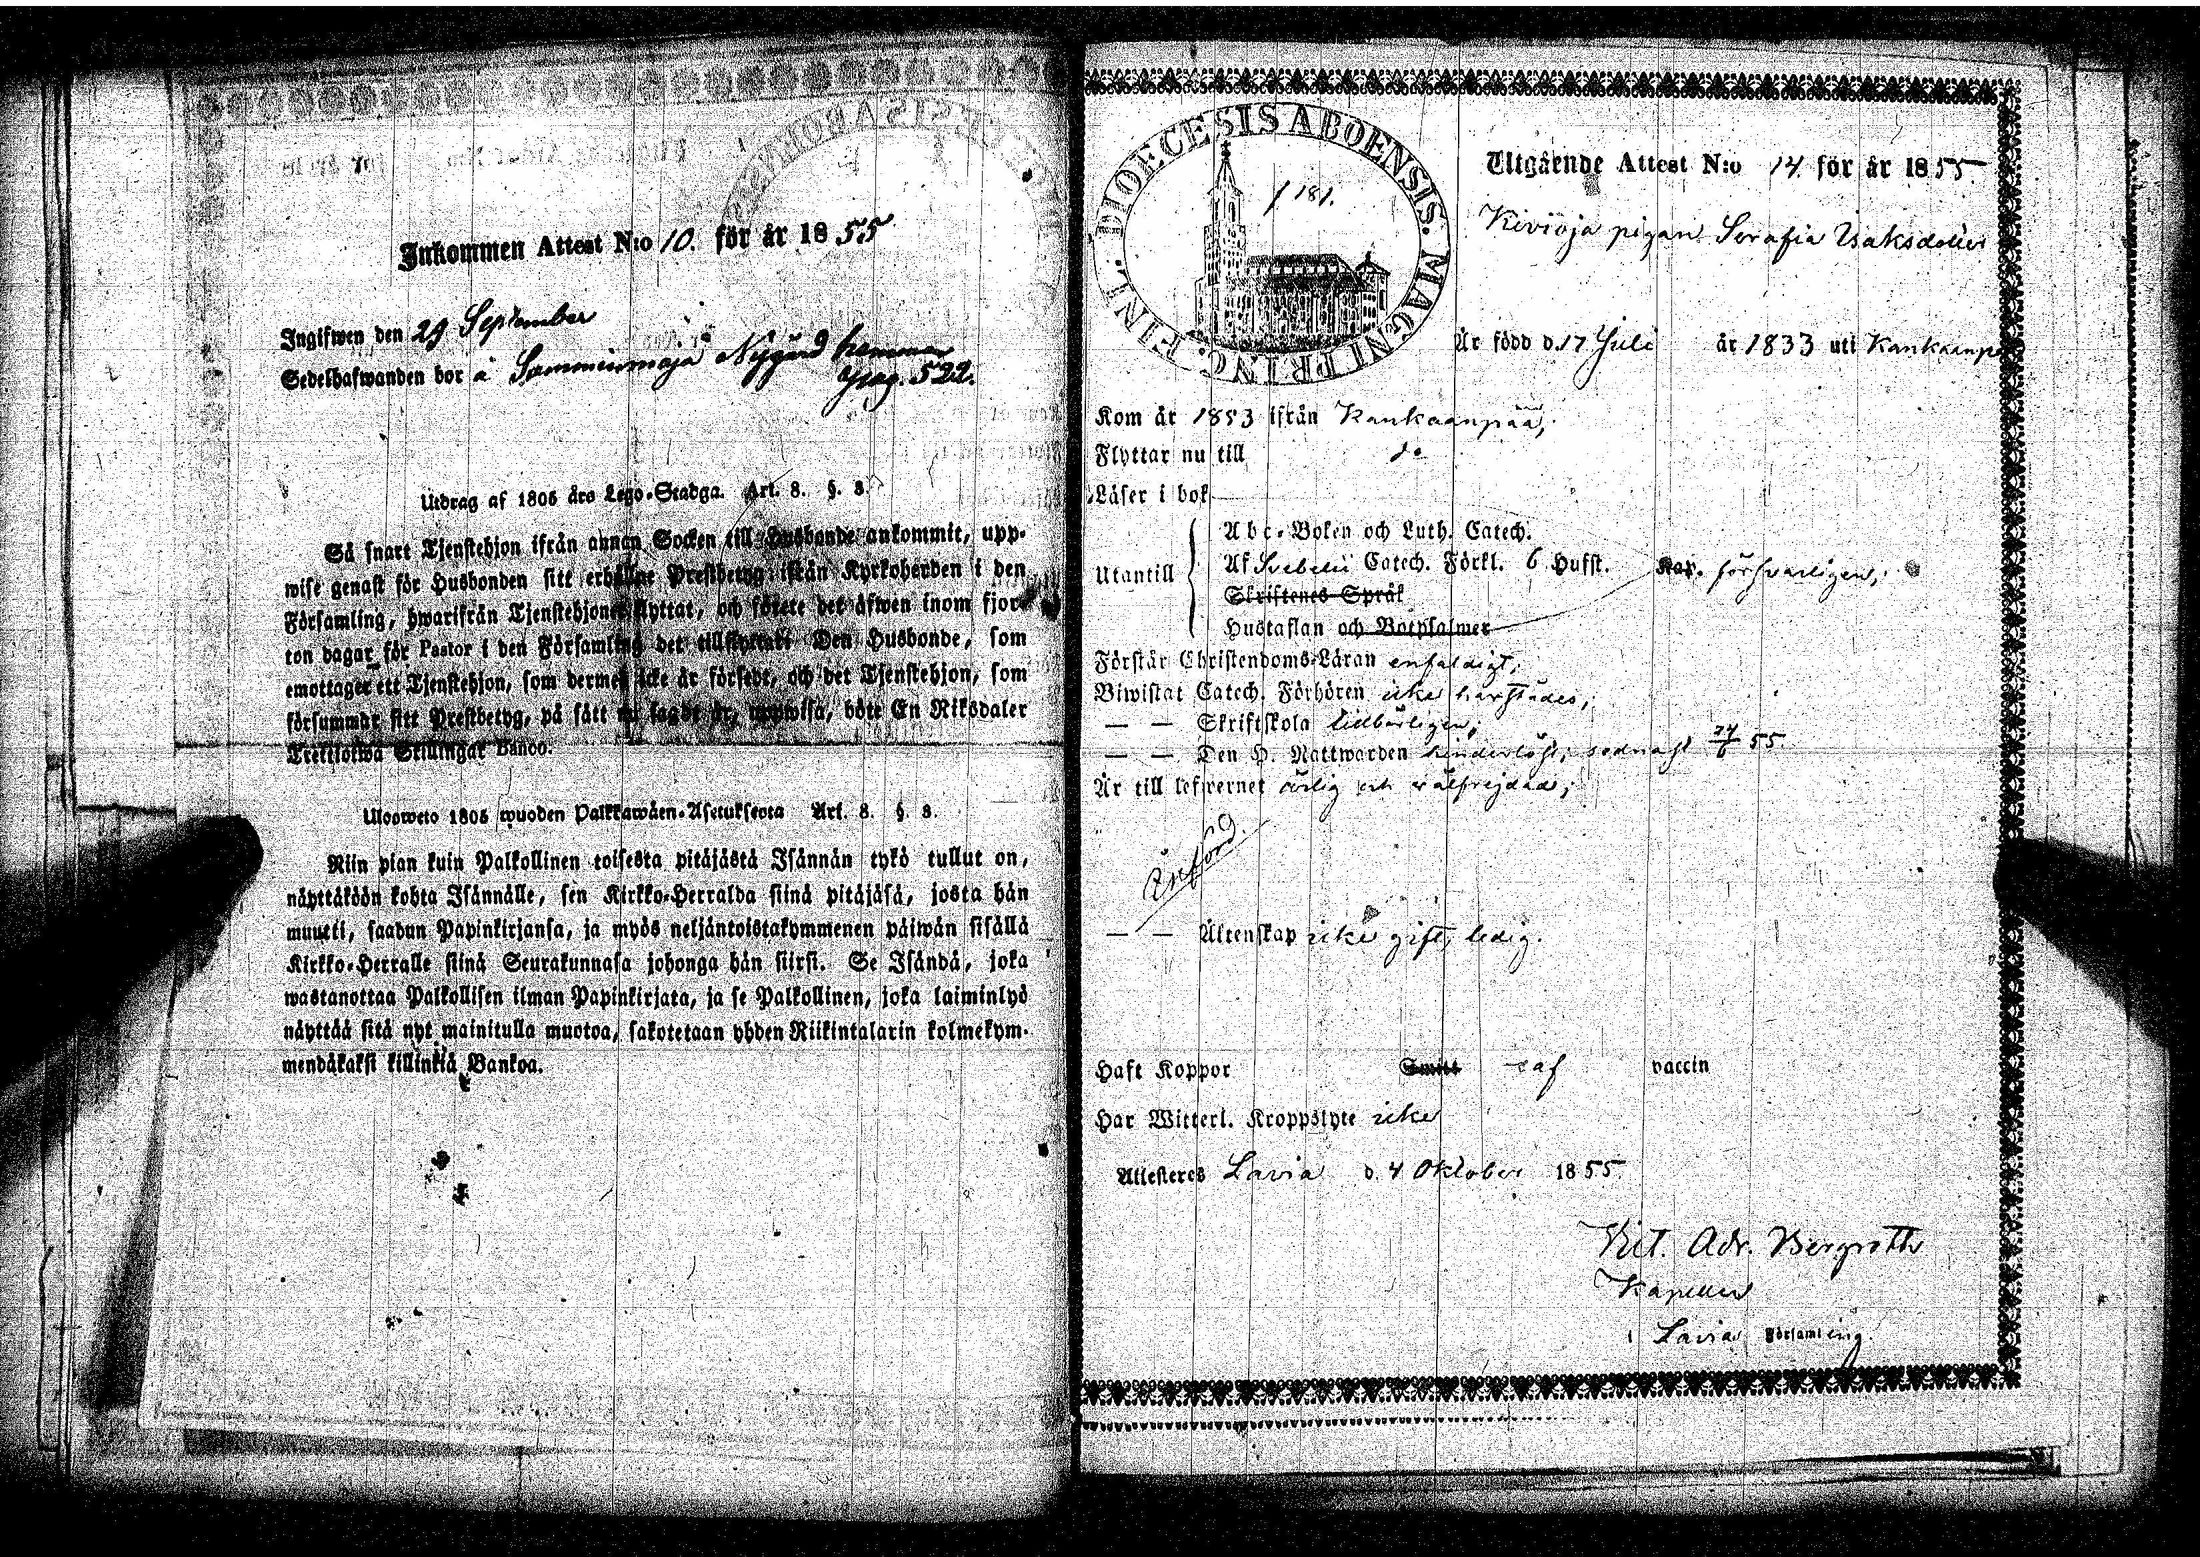 Inkommen Attest N:o 10. för år 1855
Ingifwen den 29 September
Sedelhafwanden bor å Sommismaja Nygård hemman
pag. 522.
Utdrag af 1805 års Lego-Stadga. Art. 8. §. 3.
Så snart Tjenstehjon ifrån annan Socken till Husbonde ankommit, upp-
wise genast för Husbonden sitt erhållne Prestbetyg ifrån Kyrkoherden i den
Församling, hwarifrån Tjenstehjonet flyttat, och förete det äfwen inom fjor-
ton dagar för Pastor i den Församling det tillflyttat. Den Husbonde, som
emottager ett Tjenstehjon, som dermed icke är försedt, och det Tjenstehjon, som
försummar sitt Prestbetyg, på sätt nu sagdt är, uppwisa, böte En Riksdaler
Trettiotwå Skillingar Banco.
Ulosweto 1805 wuoden Palkkawäen-Asetuksesta Art. 8. §. 3.
Niin pian kuin Palkollinen toisesta pitäjästä Isännän tykö tullut on,
näyttäköön kohta Isännälle, sen Kirkko-Herralda siinä pitäjäsä, josta hän
muutti, saadun Papinkirjansa, ja myös neljäntoistakymmenen päiwän sisällä
Kirkko-Herralle siinä Seurakunnasa johonga hän siirsi. Se Isändä, joka
wastanottaa Palkollisen ilman Papinkirjata, ja se Palkollinen, joka laiminlyö
näyttää sitä nyt mainitulla muotoa, sakotetaan yhden Riikintalarin kolmekym-
mendäkaksi killinkiä Bankoa.
DIOECESIS ABOENSIS. MAGNI PRINC. FINL.
p 181.
Utgående Attest N:o 14 för år 1855
Kivioja pigan Serafia Isaksdotter
Är född d. 17 Juli år 1833 uti Kankaanpä
Kom år 1853 ifrån Kankaanpää,
Flyttar nu till do
Läser i bok
Utantill
Abc-Boken och Luth. Catech.
Af Svebelii Catech. Förkl. 6 Hufst. Kap. försvarligen,
Skriftenes Språk
Hustaflan och Botpsalmer
Förstår Christendoms-Läran enfaldigt,
Biwistat Catech. Förhören icke härstädes,
— — Skriftskola tillbörligen,
— — Den H. Nattwarden hinderlöst, sednast 24/6 55.
Är till lefwernet ärlig och välfrejdad,
Införd.
— — Äktenskap icke gift, ledig.
Haft Koppor Smitt af vaccin
Har Witterl. Kroppslyte icke
Attesteres Lavia d. 4 Oktober 1855.
Vict. Adr. Bergroth
Kapellan
i Lavia Församling.